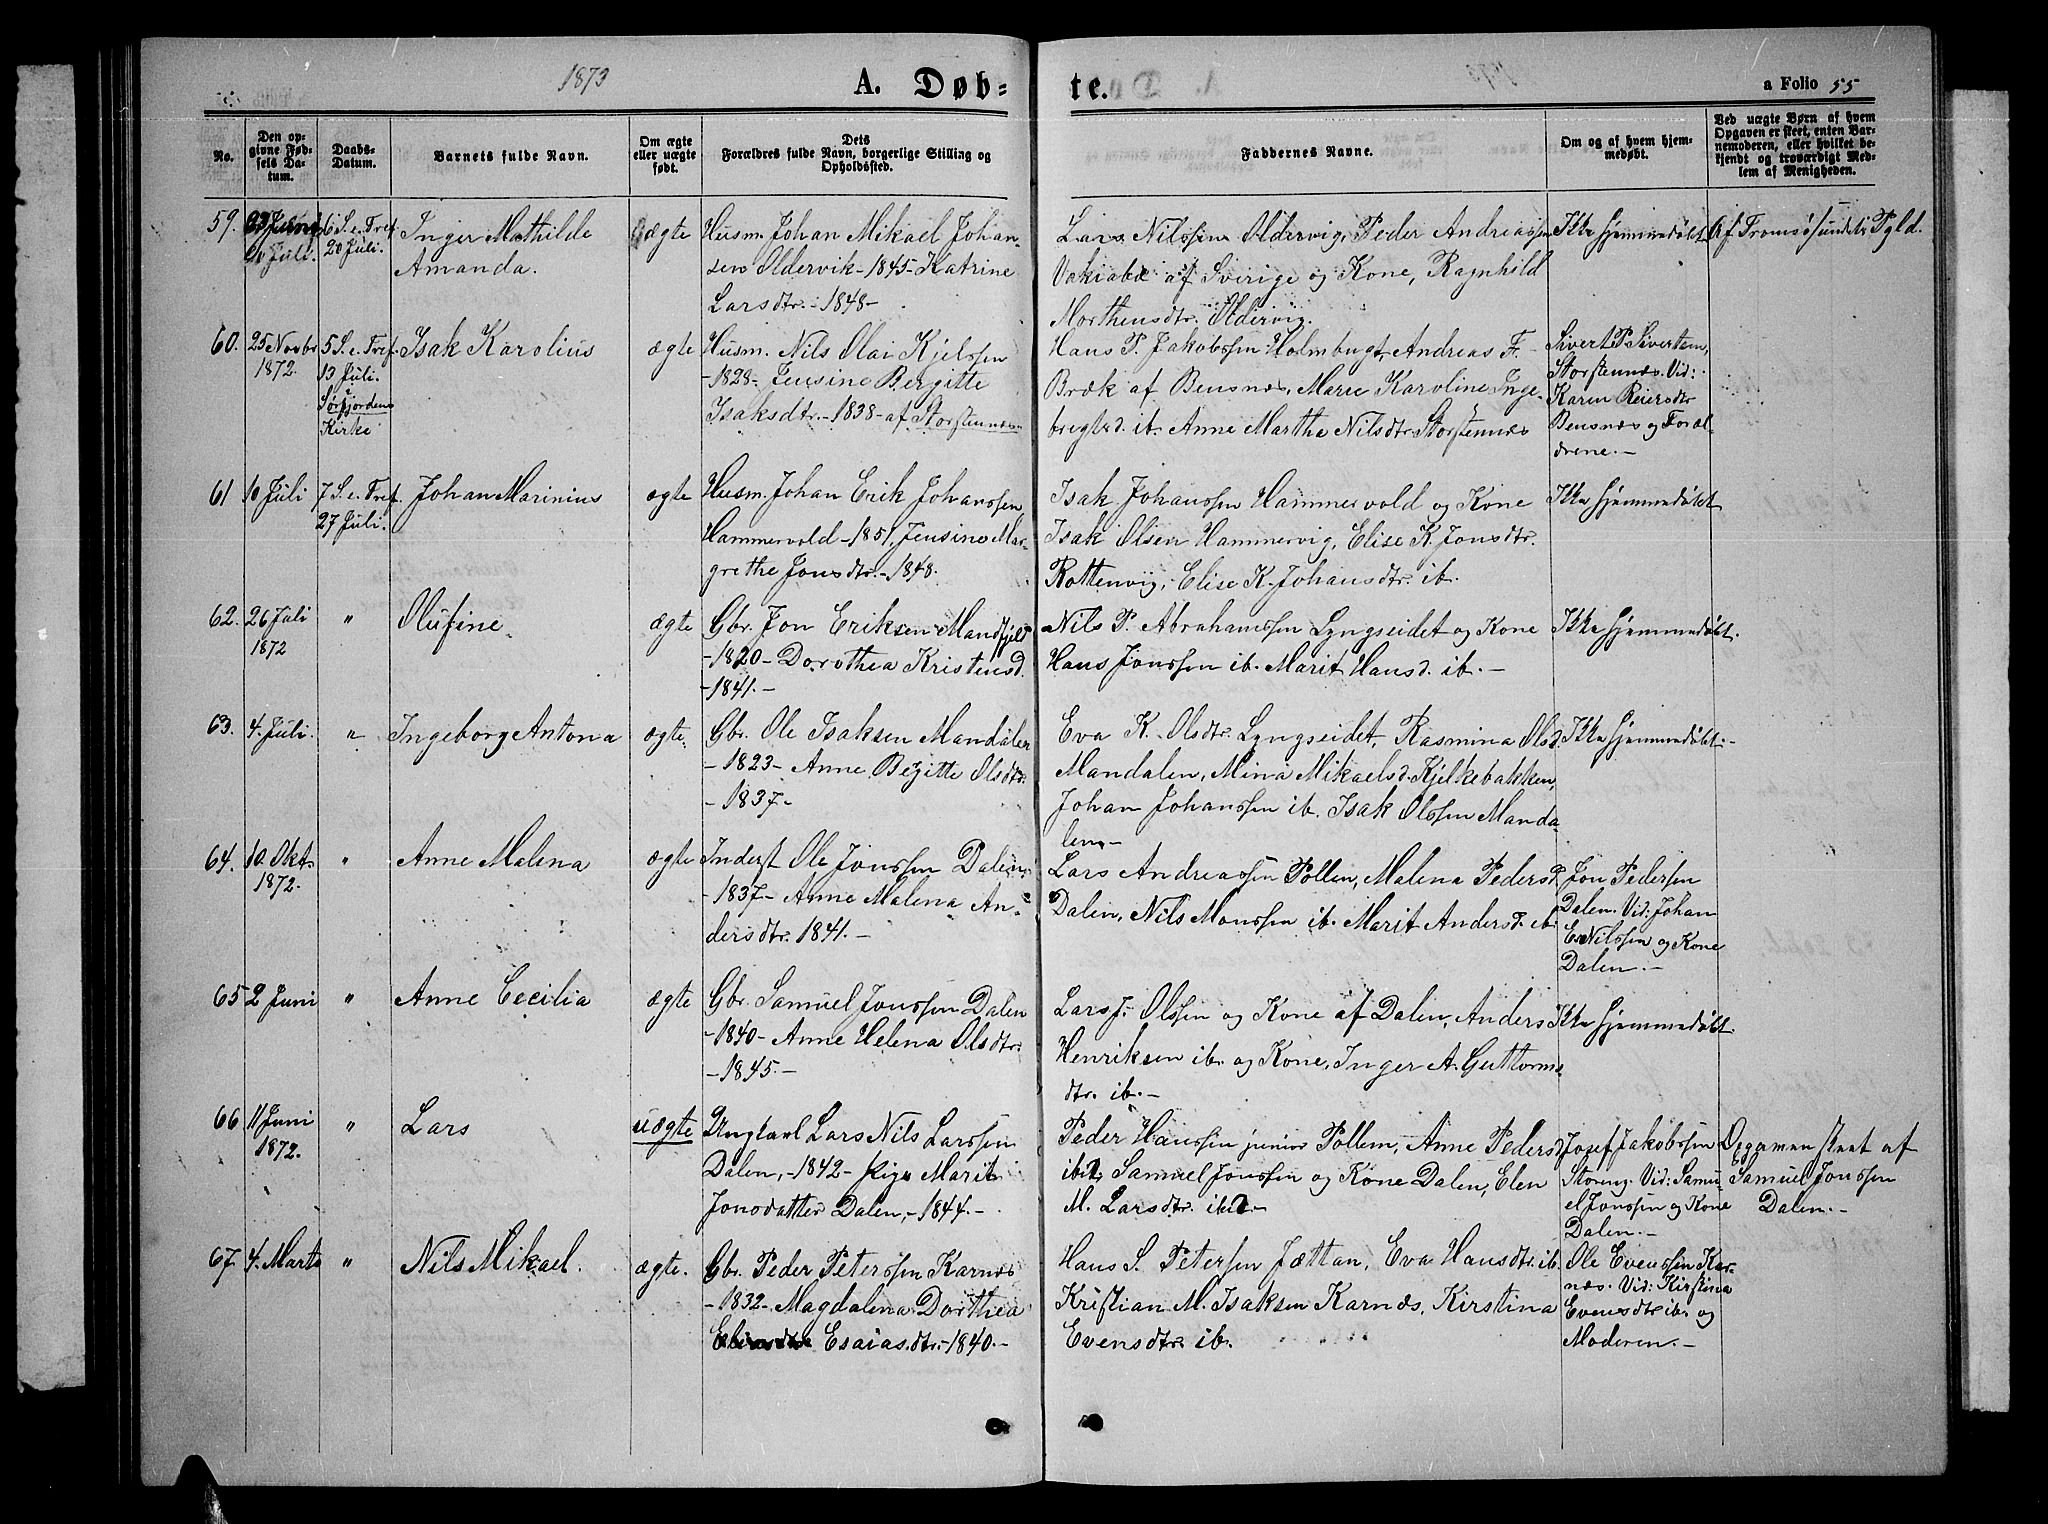 1873
A. Døb=
te.
a Folio 55
No.
Den op=
givne Fød=
sels Da=
tum.
Daabs=
Datum.
Barnets fulde Navn.
Om ægte
eller uægte
født.
Dets
Forældres fulde Navn, borgerlige Stilling og
Opholdssted.
Faddernes Navne.
Om og af hvem hjem=
medøbt.
Ved uægte Børn af hvem
Opgaven er skeet, enten Bar=
nemoderen, eller hvilket be=
kjendt og troværdigt Med=
lem af Menigheden.
59.
Juli.
6 S. e. Tref.
20 Juli.
Inger Mathilde
Amanda.
ægte
Husm. Johan Mikael Johan-
sen Oldervik - 1845 - Katrine
Larsdtr. - 1848 -
Lars Nilssen Oldervig, Peder Andreassen
af Sverige og Kone, Ragnhild
Morthensdtr. Oldervig.
Ikke hjemmedøbt
Af Tromsøsundets Pgld.
60.
25 Novbr
1872.
5 S. e. Tref.
13 Juli.
Sørfjordens
Kirke
Isak Karolius
ægte
Husm. Nils Olai Kjelssen
- 1828 - Jensine Bergitte
Isaksdtr. - 1838 - af Storstennæs
Hans P. Jakobssen Holmbugt, Andreas F.
Bræk af Bensnæs, Marie Karoline Inge-
bregtsd. ib. Anne Martha Nilsdtr. Storstennæs
Sivert P. Sivertsen,
Storstennæs. Vid:
Karen Reiersdtr
Bensnæs og Foræl-
drene. -
61
10 Juli
7 S. e. Tref.
27 Juli.
Johan Marinius
ægte
Husm. Johan Erik Johanssen
Hammervold - 1851, Jensine Mar-
grethe Jonsdtr. - 1848.
Isak Johanssen Hammervold og Kone
Isak Olsen Hammervig, Elise K. Jonsdtr.
Rottenvig, Elise K. Johansdtr. ib.
Ikke hjemmedøbt
62.
26 Juli
1872
"
Olufine
ægte
Gbr. Jon Eriksen Mandfjeld
- 1820 - Dorothea Kristensd.
- 1841. -
Nils P. Abrahamssen Lyngseidet og Kone
Hans Jonssen ib. Marit Hansd. ib. -
Ikke hjemmedøbt.
63.
4. Juli.
"
Ingeborg Antona
ægte.
Gbr. Ole Isaksen Mandalen
- 1823 - Anne Begitte Olsdtr.
- 1837 -
Eva K. Olsdtr. Lyngseidet, Rasmina Olsd.
Mandalen, Mina Mikaelsd. Kjelkebakken,
Johan Johanssen ib. Isak Olssen Manda-
len. -
Ikke hjemmedøbt. -
64.
10. Okt.
1872.
"
Anne Malena
ægte
Inderst Ole Jonssen Dalen,
- 1837 - Anne Malena An-
dersdtr. 1841. -
Lars Andreassen Pollen, Malena Pedersd.
Dalen, Nils Monssen ib. Marit Andersd. ib.
Jon Pedersen
Dalen. Vid: Johan
E. Nilssen og Kone
Dalen. -
65
2 Juni
"
Anne Cecilia
ægte
Gbr. Samuel Jonssen Dalen
- 1840 - Anne Helena Olsdtr.
- 1845. -
Lars J. Olssen og Kone af Dalen, Anders
Henriksen ib. og Kone, Inger A. Guttorms-
dtr. ib. -
Ikke hjemmedøbt.
66
11 Juni
1872.
"
Lars
uægte
Ungkarl Lars Nils Larssen
Dalen, - 1842 - pige Marit
Jonsdatter Dalen, - 1844. -
Peder Hanssen junior Pollen, Anne Pedersd.
ibd, Samuel Jonssen og Kone Dalen, Elen
M. Larsdtr. ibd -
Josef Jakobssen
Storeng. Vid: Samu-
el Jonssen og Kone
Dalen. -
Opgaven skeet af
Samuel Jonssen
Dalen. -
67.
4. Marts
"
Nils Mikael.
ægte.
Gbr. Peder Peterssen Karnæs
- 1832 - Magdalena Dorthea
Esaiasdtr. - 1840. -
Hans S. Petersen Jættan, Eva Hansdtr. ib.
Kristian M. Isaksen Karnæs, Kirstina
Evensdtr. ib.
Ole Evenssen Kar-
næs. Vid: Kirstina
Evensdtr. ib. og
Moderen. -